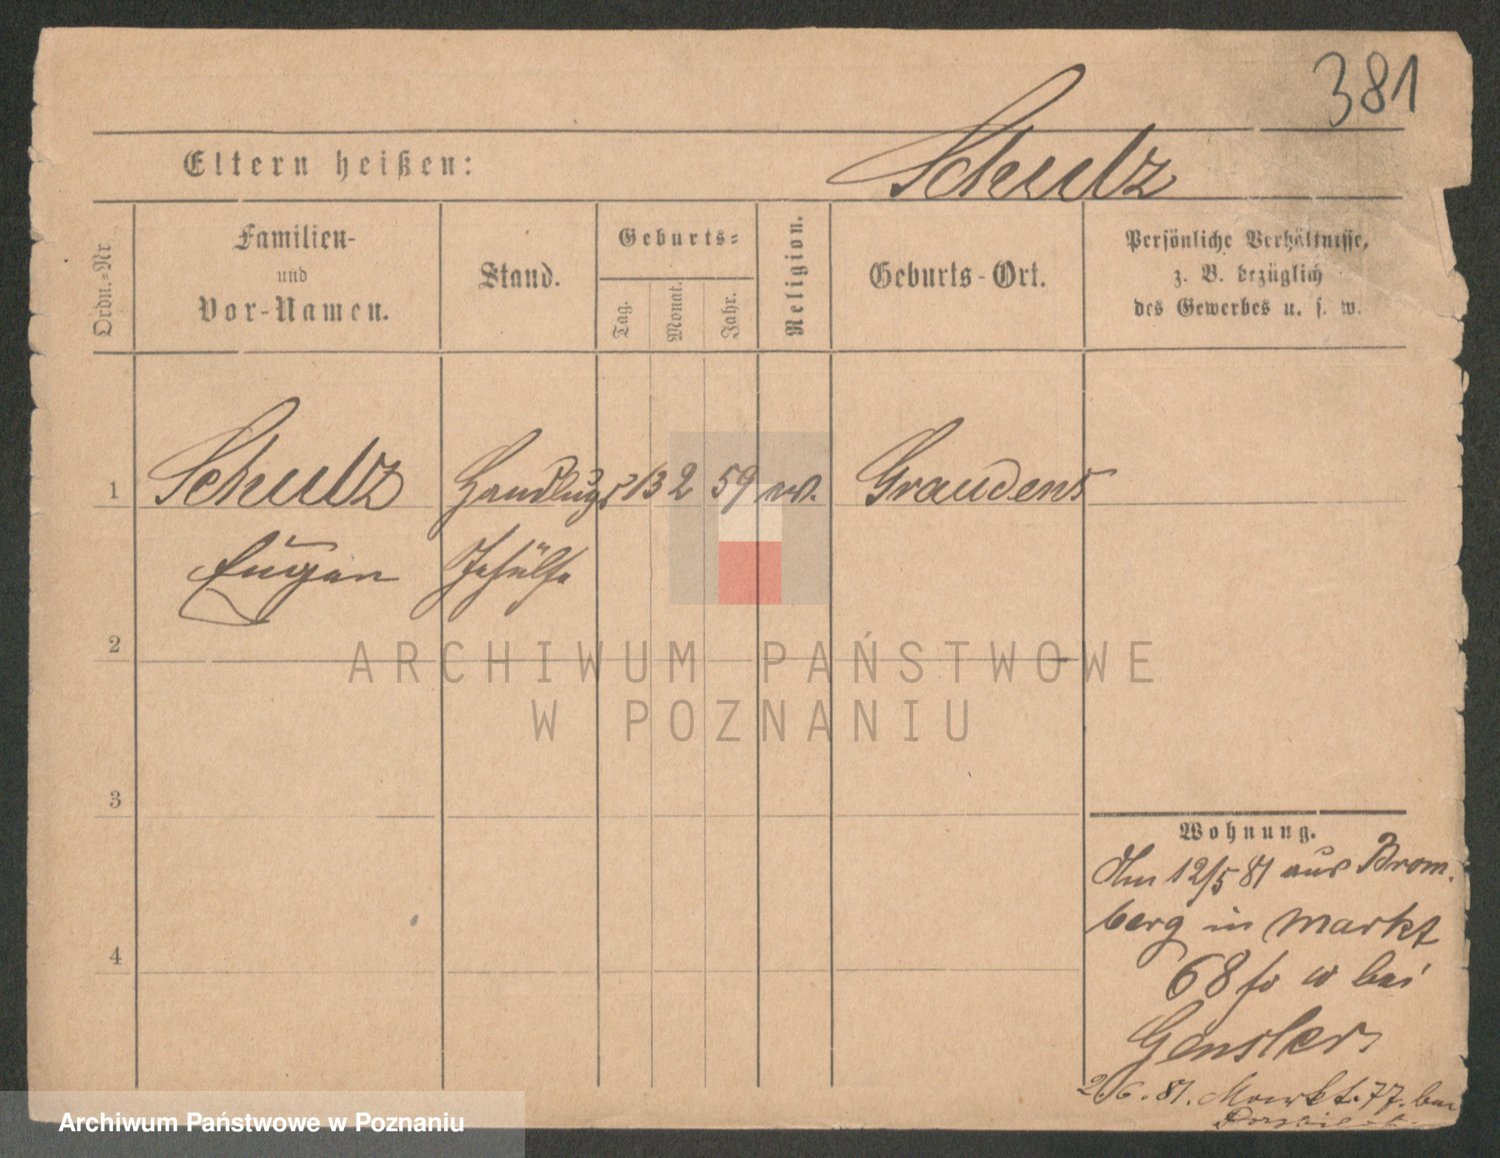 381
Eltern heißen: Schulz
Ordn.-Nr
Familien-
und
Vor-Namen.
Stand.
Geburts-
Tag.
Monat.
Jahr.
Religion.
Geburts-Ort.
Persönliche Verhältnisse,
z. B. bezüglich
des Gewerbes u. s. w.
1 Schulz Handlugs 13 2 59 ev. Graudenz
Eugen Gehülfe
2
3
4
Wohnung.
Am 12/5 81 aus Brom-
berg in Markt
68 w bei
Gensler
2.6.81. Markt 77. bei
ARCHIWUM PAŃSTWOWE
W POZNANIU
Archiwum Państwowe w Poznaniu